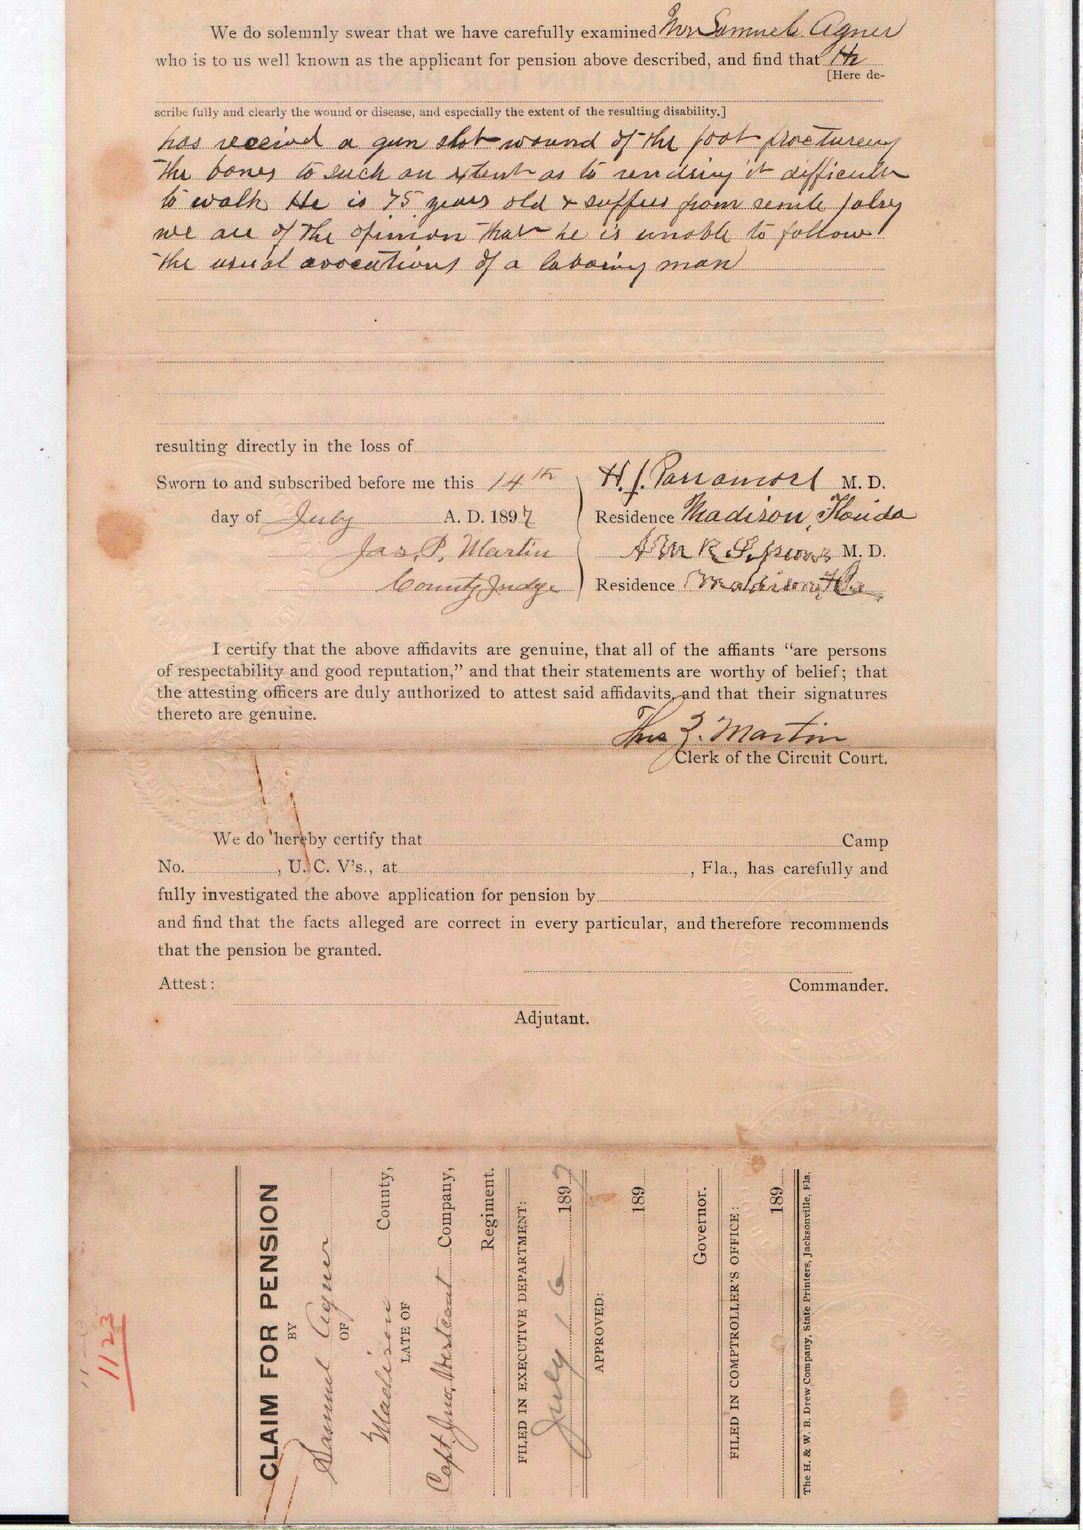 We do solemnly swear that we have carefully examined Mr Samuel Agner
who is to us well known as the applicant for pension above described, and find that He
[Here de-
scribe fully and clearly the wound or disease, and especially the extent of the resulting disability.]
has received a gun shot wound of the foot fracturing
the bones to such an extent as to rendering it difficult
to walk He is 75 years old & suffers from senile palsy
we are of the opinion that he is unable to follow
the usual avocations of a laboring man
resulting directly in the loss of
Sworn to and subscribed before me this 14th
H. J. Parramore M. D.
day of July A. D. 1897
Residence Madison, Florida
Jas. P. Martin
M. D.
County Judge
Residence Madison, Fla.
I certify that the above affidavits are genuine, that all of the affiants “are persons
of respectability and good reputation,” and that their statements are worthy of belief; that
the attesting officers are duly authorized to attest said affidavits, and that their signatures
thereto are genuine.
Martin
Clerk of the Circuit Court.
We do hereby certify that Camp
No. , U. C. V's., at , Fla., has carefully and
fully investigated the above application for pension by
and find that the facts alleged are correct in every particular, and therefore recommends
that the pension be granted.
Attest: Commander.
Adjutant.
1123
CLAIM FOR PENSION
BY
Samuel Agner
OF
Madison County,
LATE OF
Capt. Jno. Westcoat Company,
Regiment.
FILED IN EXECUTIVE DEPARTMENT:
July 16 1897
APPROVED:
189
Governor.
FILED IN COMPTROLLER'S OFFICE:
189
The H. & W. B. Drew Company, State Printers, Jacksonville, Fla.